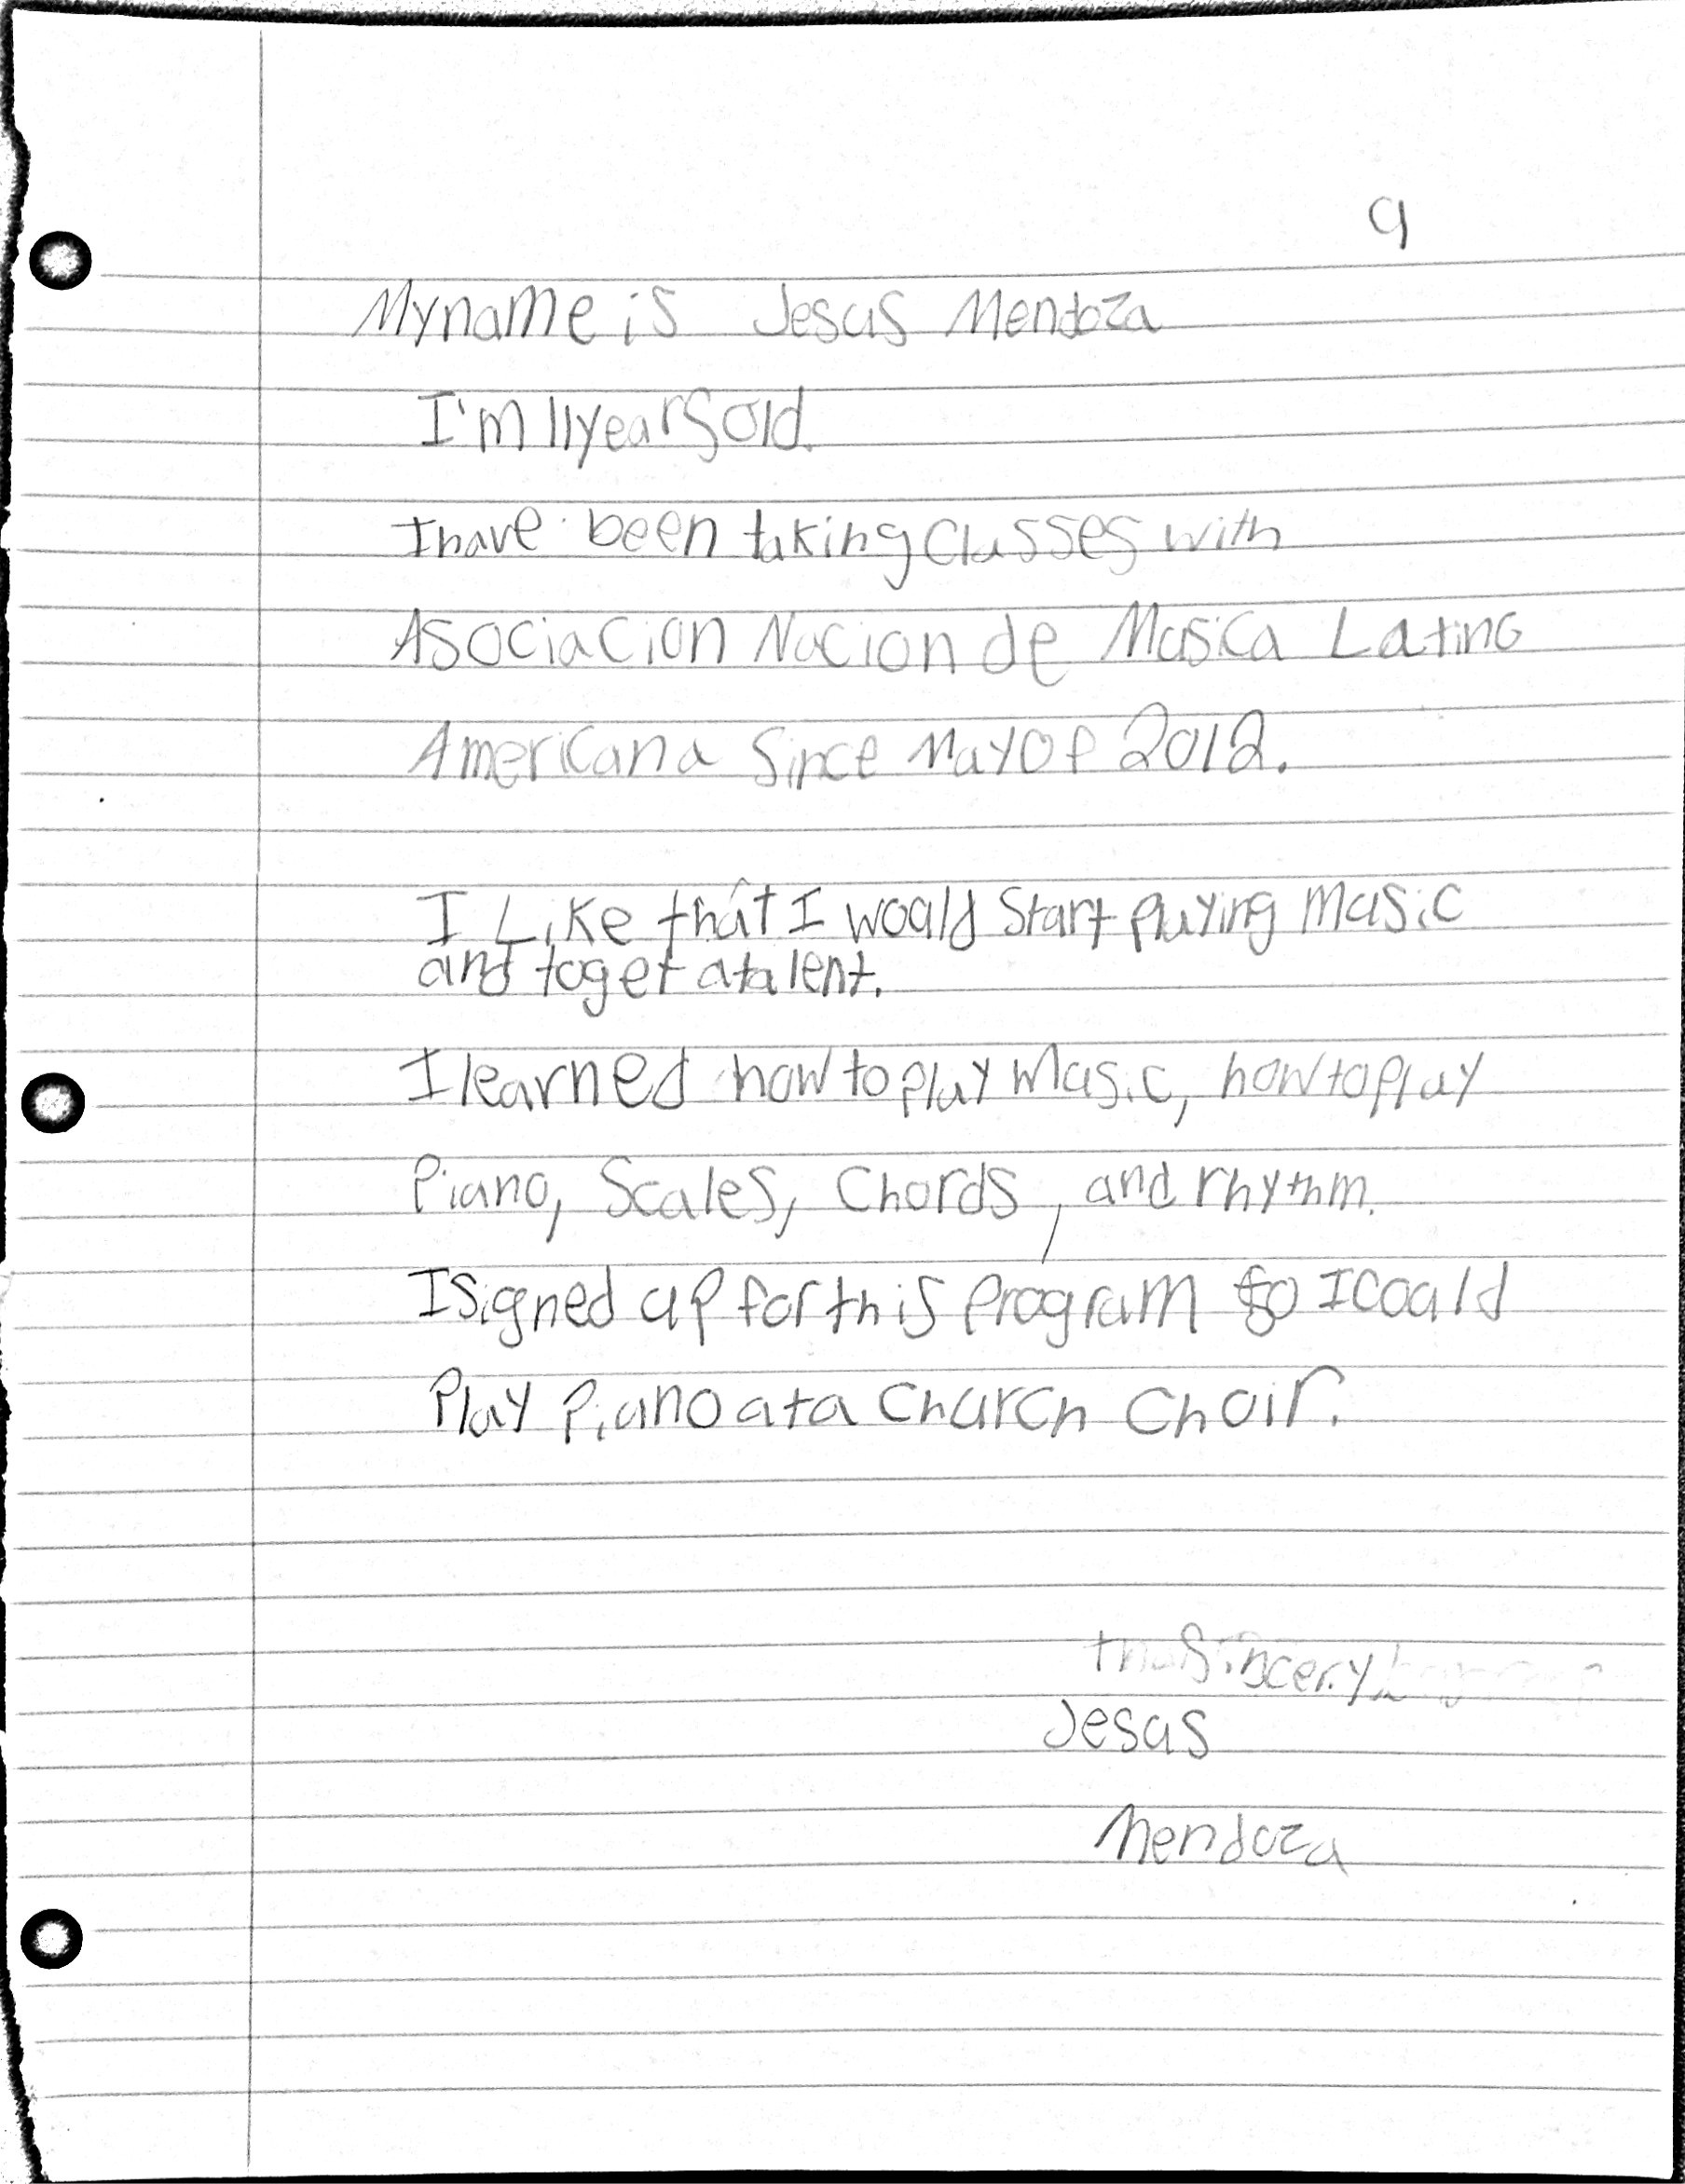 9
My name is Jesus Mendoza
I'm 11 years old.
I have been taking classes with
Asociacion Nacion de Musica Latino
Americana Since May of 2012.
I Like that I would Start playing music
and to get a talent.
I learned how to play Music, how to play
Piano, Scales, Chords, and rhythm.
I signed up for this program so I could
Play Piano at a Church Choir.
Sincery,
Jesus
Mendoza